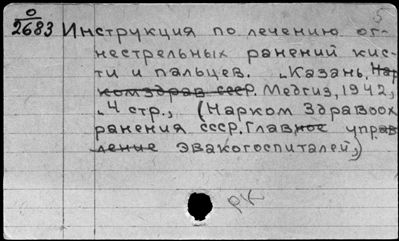 5
О
2683 Инструкция по лечению ог-
нестрельных ранений кис-
ти и пальцев. „Казань, Нар-
комздрав ссср. Медгиз, 1942,
„4 стр., (Нарком Здравоох
ранения ссср. Главное управ
ление эвакогоспиталей,)
РК